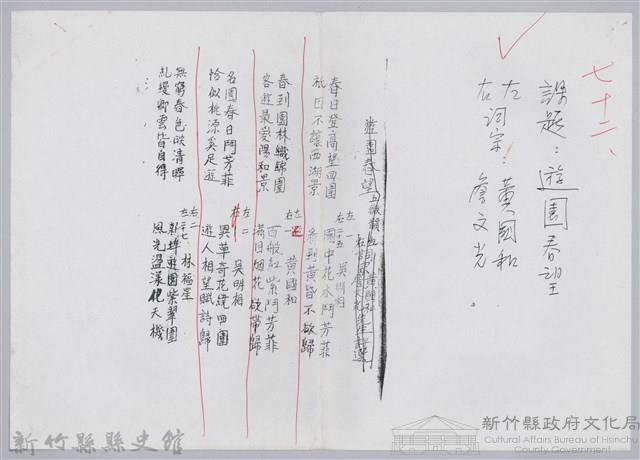 七十二、
課題：遊園春望
左詞宗：黃國和
右詞宗：詹文光。
遊園春望
左一 右二十五 吳明相
春日登高望四圍 園中花木鬥芳菲
祇因不讓西湖景 看到黃昏不欲歸
右一 黃國和
春到園林織錦圍 百般紅紫鬥芳菲
客遊最愛陽和景 滿目烟花欲帶歸
左二 吳明相
名園春日鬥芳菲 異草奇花繞四圍
恰似桃源奚足遊 遊人相望賦詩歸
右二 左二十七 林福星
無窮春色映清暉 遊園紫翠圍
糺縵卿雲皆自得 風光盪漾化天機
新竹縣縣史館
新竹縣政府文化局
Cultural Affairs Bureau of Hsinchu
County Government